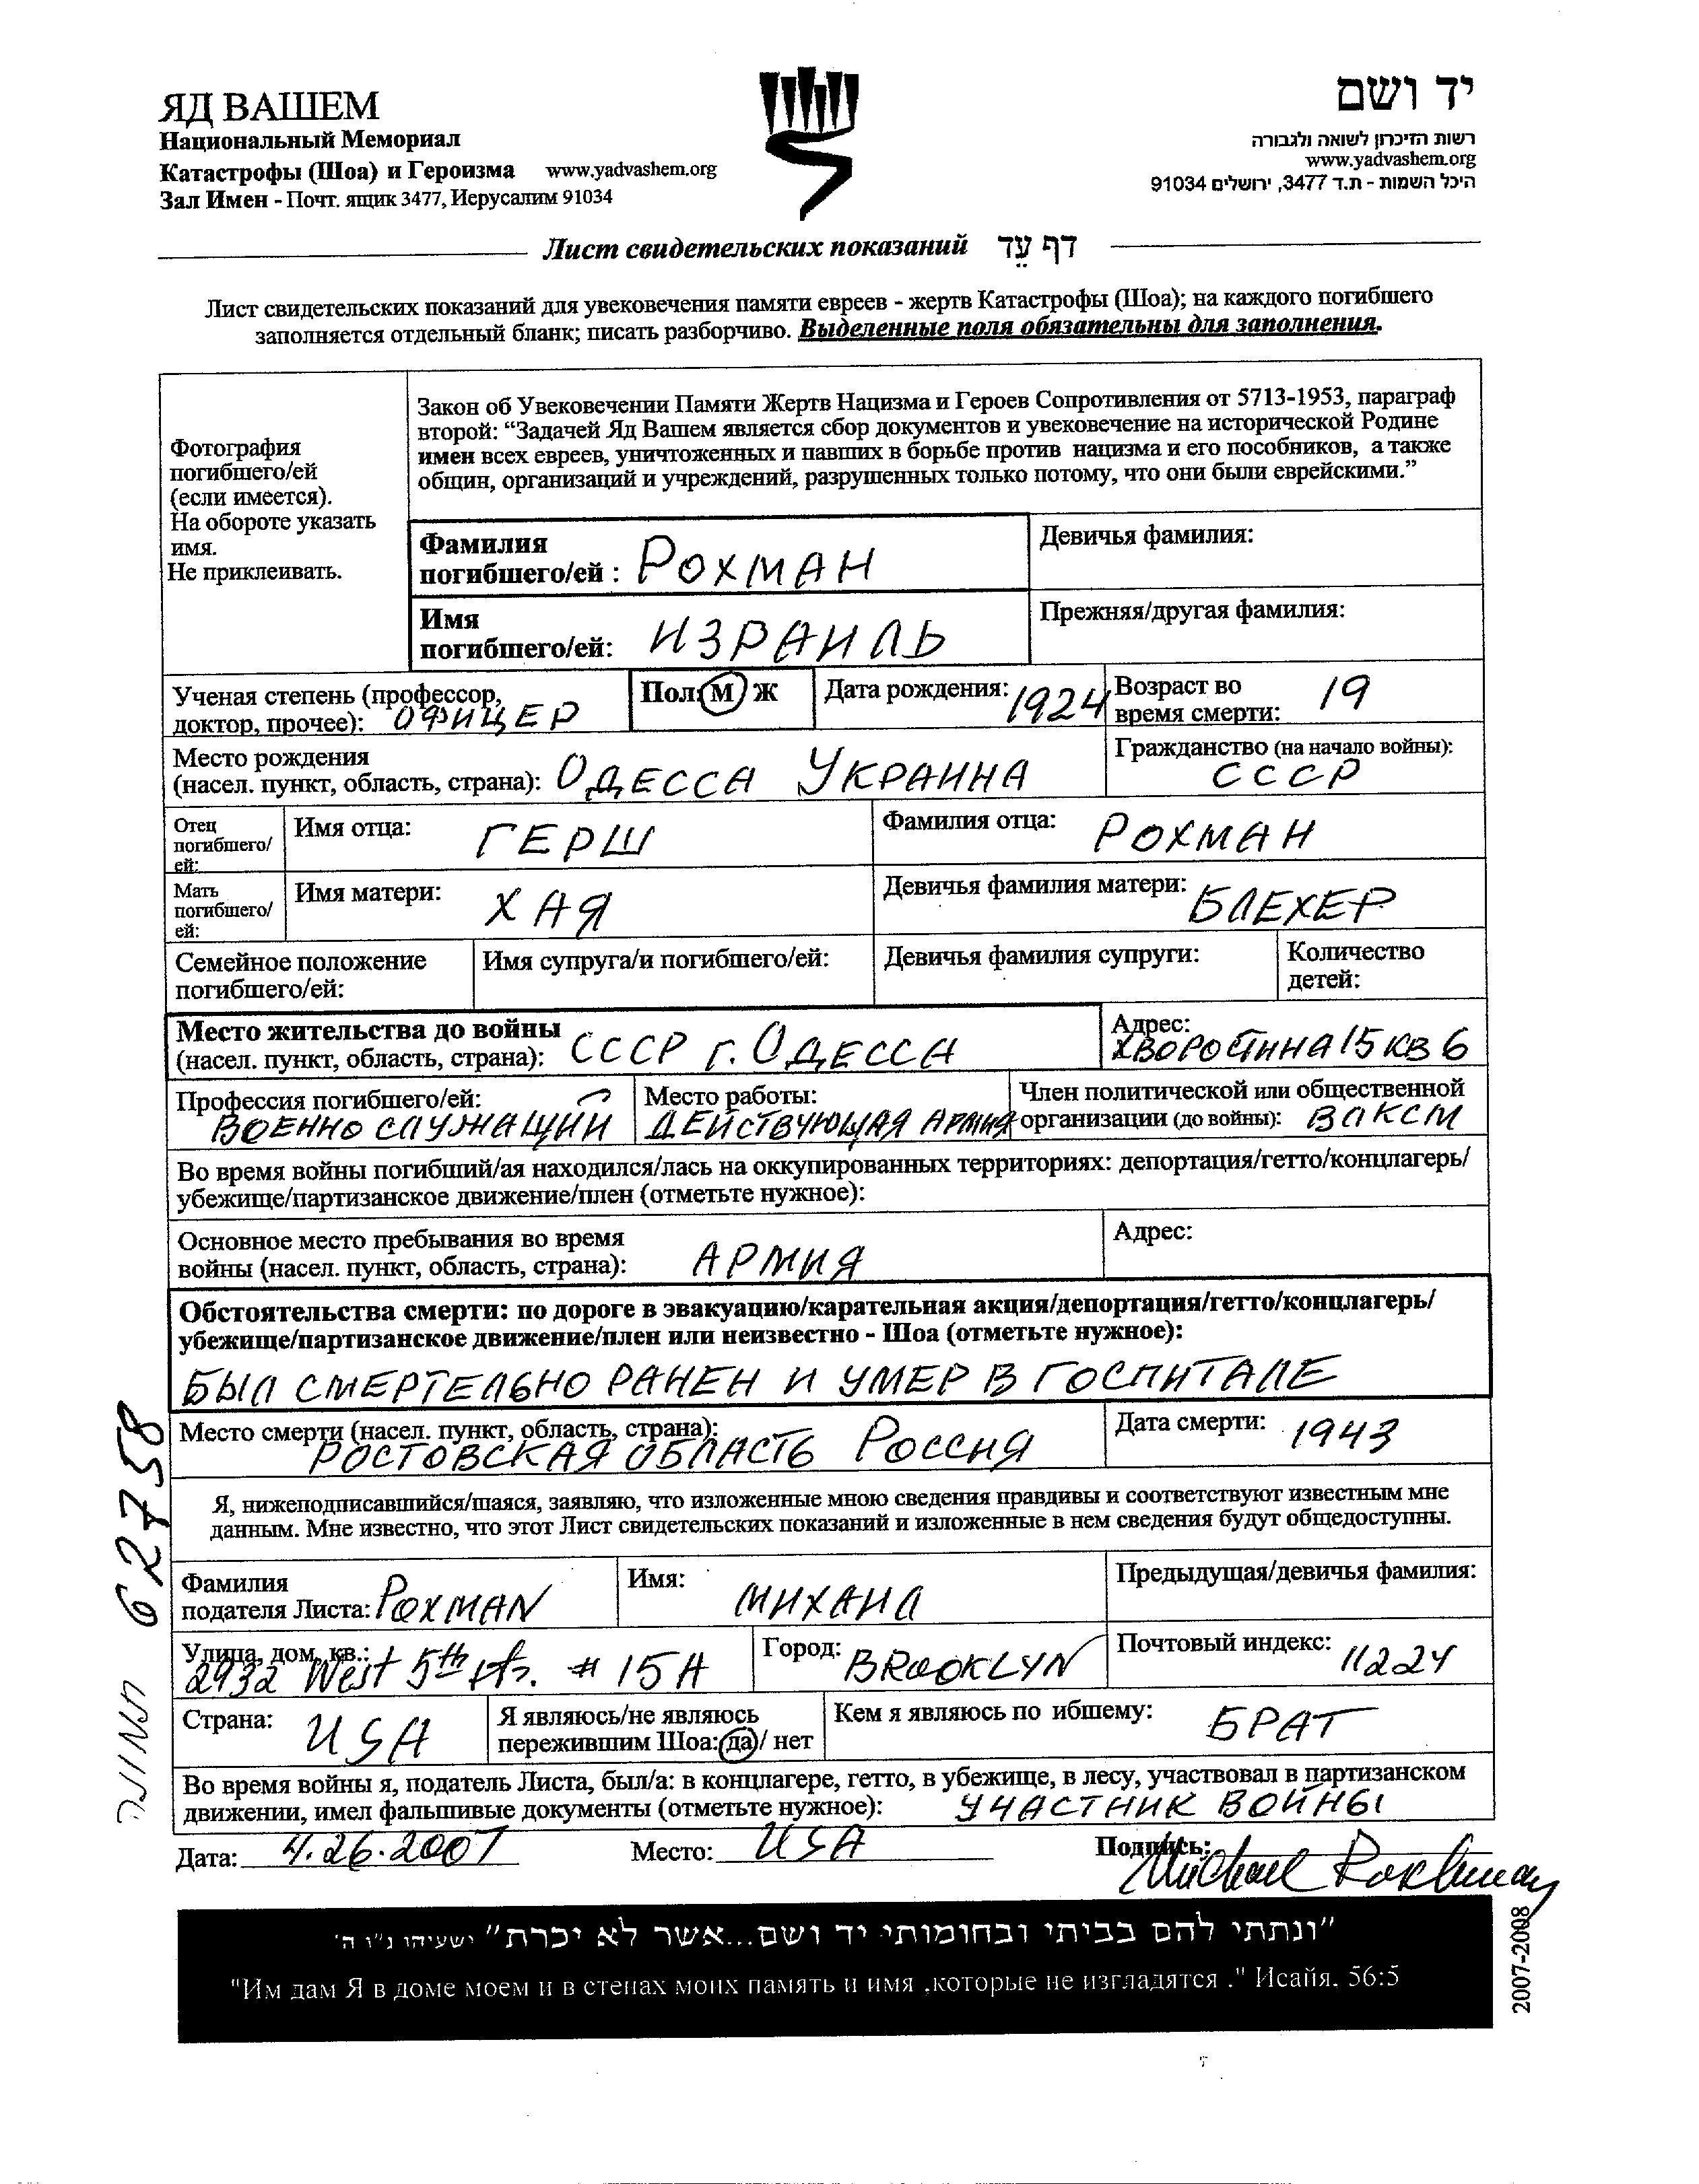 ЯД ВАШЕМ
Национальный Мемориал
Катастрофы (Шоа) и Героизма www.yadvashem.org
Зал Имен - Почт. ящик 3477, Иерусалим 91034
יד ושם
רשות הזיכרון לשואה ולגבורה
www.yadvashem.org
היכל השמות - ת.ד 3477, ירושלים 91034
Лист свидетельских показаний דף עֵד
Лист свидетельских показаний для увековечения памяти евреев - жертв Катастрофы (Шоа); на каждого погибшего
заполняется отдельный бланк; писать разборчиво. Выделенные поля обязательны для заполнения.
Фотография
погибшего/ей
(если имеется).
На обороте указать
имя.
Не приклеивать.
Закон об Увековечении Памяти Жертв Нацизма и Героев Сопротивления от 5713-1953, параграф
второй: “Задачей Яд Вашем является сбор документов и увековечение на исторической Родине
имен всех евреев, уничтоженных и павших в борьбе против нацизма и его пособников, а также
общин, организаций и учреждений, разрушенных только потому, что они были еврейскими.”
Фамилия
погибшего/ей : РОХМАН
Девичья фамилия:
Имя
погибшего/ей: ИЗРАИЛЬ
Прежняя/другая фамилия:
Ученая степень (профессор,
доктор, прочее): ОФИЦЕР
Пол: М Ж
Дата рождения: 1924
Возраст во
время смерти: 19
Место рождения
(насел. пункт, область, страна): ОДЕССА УКРАИНА
Гражданство (на начало войны):
СССР
Отец
погибшего/
ей:
Имя отца: ГЕРШ
Фамилия отца: РОХМАН
Мать
погибшего/
ей:
Имя матери: ХАЯ
Девичья фамилия матери: БЛЕХЕР
Семейное положение
погибшего/ей:
Имя супруга/и погибшего/ей:
Девичья фамилия супруги:
Количество
детей:
Место жительства до войны
(насел. пункт, область, страна): СССР г. ОДЕССА
Адрес:
ХВОРОСТИНА 15 КВ 6
Профессия погибшего/ей:
ВОЕННОСЛУЖАЩИЙ
Место работы:
ДЕЙСТВУЮЩАЯ АРМИЯ
Член политической или общественной
организации (до войны): ВЛКСМ
Во время войны погибший/ая находился/лась на оккупированных территориях: депортация/гетто/концлагерь/
убежище/партизанское движение/плен (отметьте нужное):
Основное место пребывания во время
войны (насел. пункт, область, страна): АРМИЯ
Адрес:
Обстоятельства смерти: по дороге в эвакуацию/карательная акция/депортация/гетто/концлагерь/
убежище/партизанское движение/плен или неизвестно - Шоа (отметьте нужное):
БЫЛ СМЕРТЕЛЬНО РАНЕН И УМЕР В ГОСПИТАЛЕ
Место смерти (насел. пункт, область, страна):
РОСТОВСКАЯ ОБЛАСТЬ РОССИЯ
Дата смерти: 1943
Я, нижеподписавшийся/шаяся, заявляю, что изложенные мною сведения правдивы и соответствуют известным мне
данным. Мне известно, что этот Лист свидетельских показаний и изложенные в нем сведения будут общедоступны.
Фамилия
подателя Листа: РОХМАN
Имя: МИХАИЛ
Предыдущая/девичья фамилия:
Улица, дом, кв.:
2932 West 5th st. # 15A
Город: BROOKLYN
Почтовый индекс: 11224
Страна: USA
Я являюсь/не являюсь
пережившим Шоа: да / нет
Кем я являюсь по ибшему: БРАТ
Во время войны я, податель Листа, был/а: в концлагере, гетто, в убежище, в лесу, участвовал в партизанском
движении, имел фальшивые документы (отметьте нужное): УЧАСТНИК ВОЙНЫ
Дата: 4.26.2007 Место: USA Подпись: Michael Rokhman
"ונתתי להם בביתי ובחומותי יד ושם...אשר לא יכרת" ישעיהו נ"ו ה'
"Им дам Я в доме моем и в стенах моих память и имя ,которые не изгладятся ." Исайя. 56:5
2007-2008
תמונה 62758